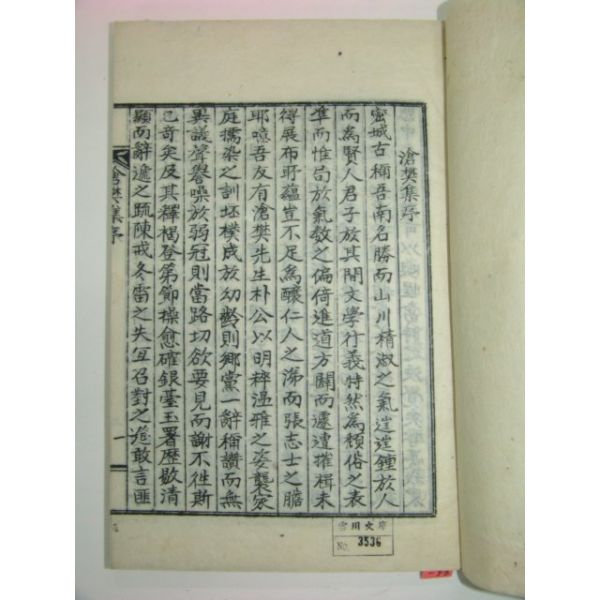 滄樊集序
密城古稱吾南名勝而山川精淑之氣逞逞鍾於人
而為賢人君子於其間文學行義特然為頹俗之表
準而惟局於氣數之偏倚進道方闢而遽遭摧楫未
得展布所蘊豈不足為釀仁人之㴢而張志士之膽
耶噫吾友有滄樊先生朴公以明粹温雅之姿襲家
庭擩染之訓坯樸成於幼齡則鄉黨一辭稱讚而無
異議聲譽噪於弱冠則當路切欲要見而謝不徃斯
已奇矣及其釋褐登第節操愈確銀臺玉署歷敭清
顯而辭遞之疏陳戒冬雷之失宜召對之
敢言匪
滄樊集序
一
No. 3536